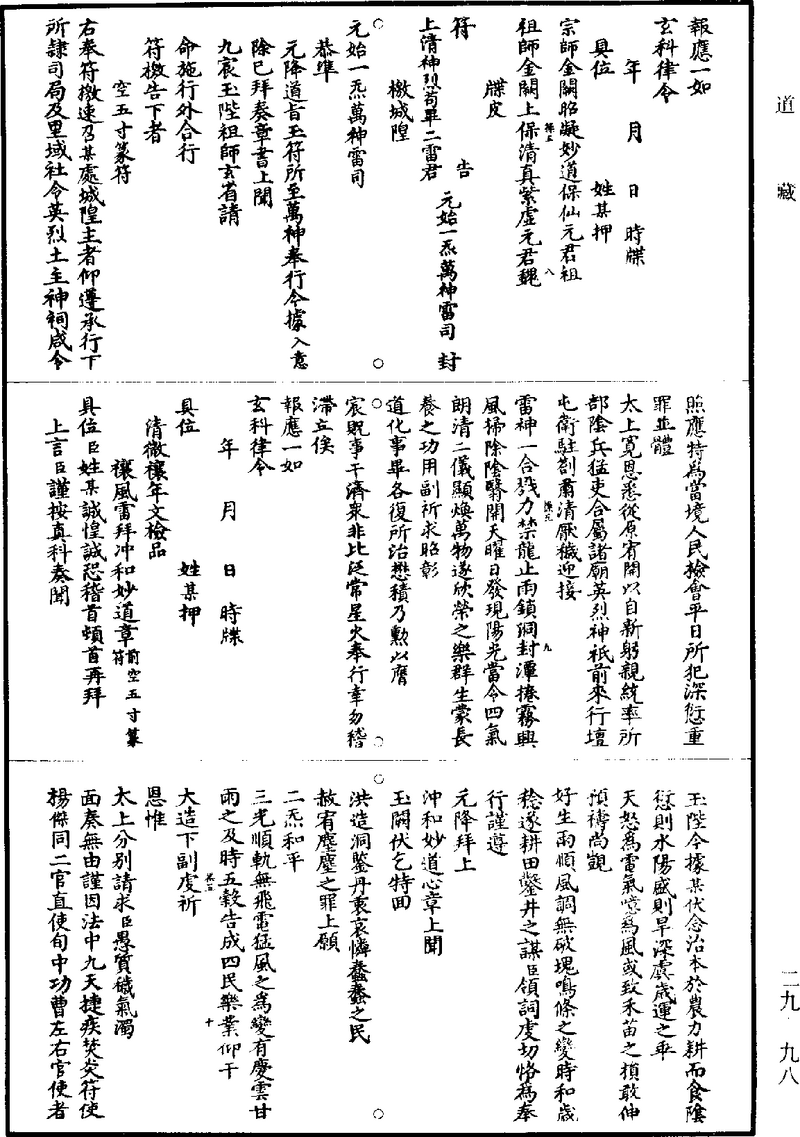 道藏
報應一如
玄科律令
年　月　日　時牒
具位　姓某押
宗師金闕昭凝妙道保仙元君祖
祖師金闕上保清真紫虛元君魏
八
牒皮
符　告　元始一炁萬神雷司　封
上清神烈苟畢二雷君
檄城隍
元始一炁萬神雷司
恭準
元降道旨玉符所至萬神奉行令據入意
除已拜奏章書上聞
九宸玉陛祖師玄省請
命施行外合行
符檄告下者
空五寸篆符
右奉符檄速召某處城隍主者仰遵承行下
所隷司局及里域社令英烈土主神祠咸令
照應特為當境人民檢會平日所犯深愆重
罪並體
太上寬恩悉從原宥開以自新躬親統率所
部陰兵猛吏合屬諸廟英烈神祇前來行壇
屯衛駐劄肅清厭穢迎接
雷神一合戮力禁龍止雨鎖洞封潭捲霧興
九
風掃除陰翳開天曜日發現陽光當令四氣
朗清二儀顯煥萬物遂欣榮之樂群生蒙長
養之功用副祈求昭彰
道化事畢各復所治懋積乃勳以膺
宸眖事干濟眾非比泛常星火奉行幸勿稽
滯立俟
報應一如
玄科律令
年　月　日　時牒
具位　姓某押
清微禳年文檢品
禳風雷拜冲和妙道章前空五寸篆符
具位臣姓某誠惶誠恐稽首頓首再拜
上言臣謹按真科奏聞
玉陛今據某伏念治本於農力耕而食陰
愆則水陽盛則旱深虞歲運之乖
天怒為雷氣噫為風或致禾苗之損敢伸
預禱尚觀
好生雨順風調無破塊鳴條之變時和歲
稔遂耕田鑿井之謀臣領詞虔切恪為奉
行謹遵
元降拜上
沖和妙道心章上聞
玉闕伏乞特回
洪造洞鑒丹衷哀憐蠢蠢之民
赦宥塵塵之罪上願
二炁和平
三光順軌無飛電猛風之為變有慶雲甘
雨之及時五穀告成四民樂業仰干
十
大造下副虔祈
恩惟
太上分別請求臣愚質穢氣濁
面奏無由謹因法中九天捷疾焚炎符使
楊傑同二官直使旬中功曹左右官使者
二九　九八